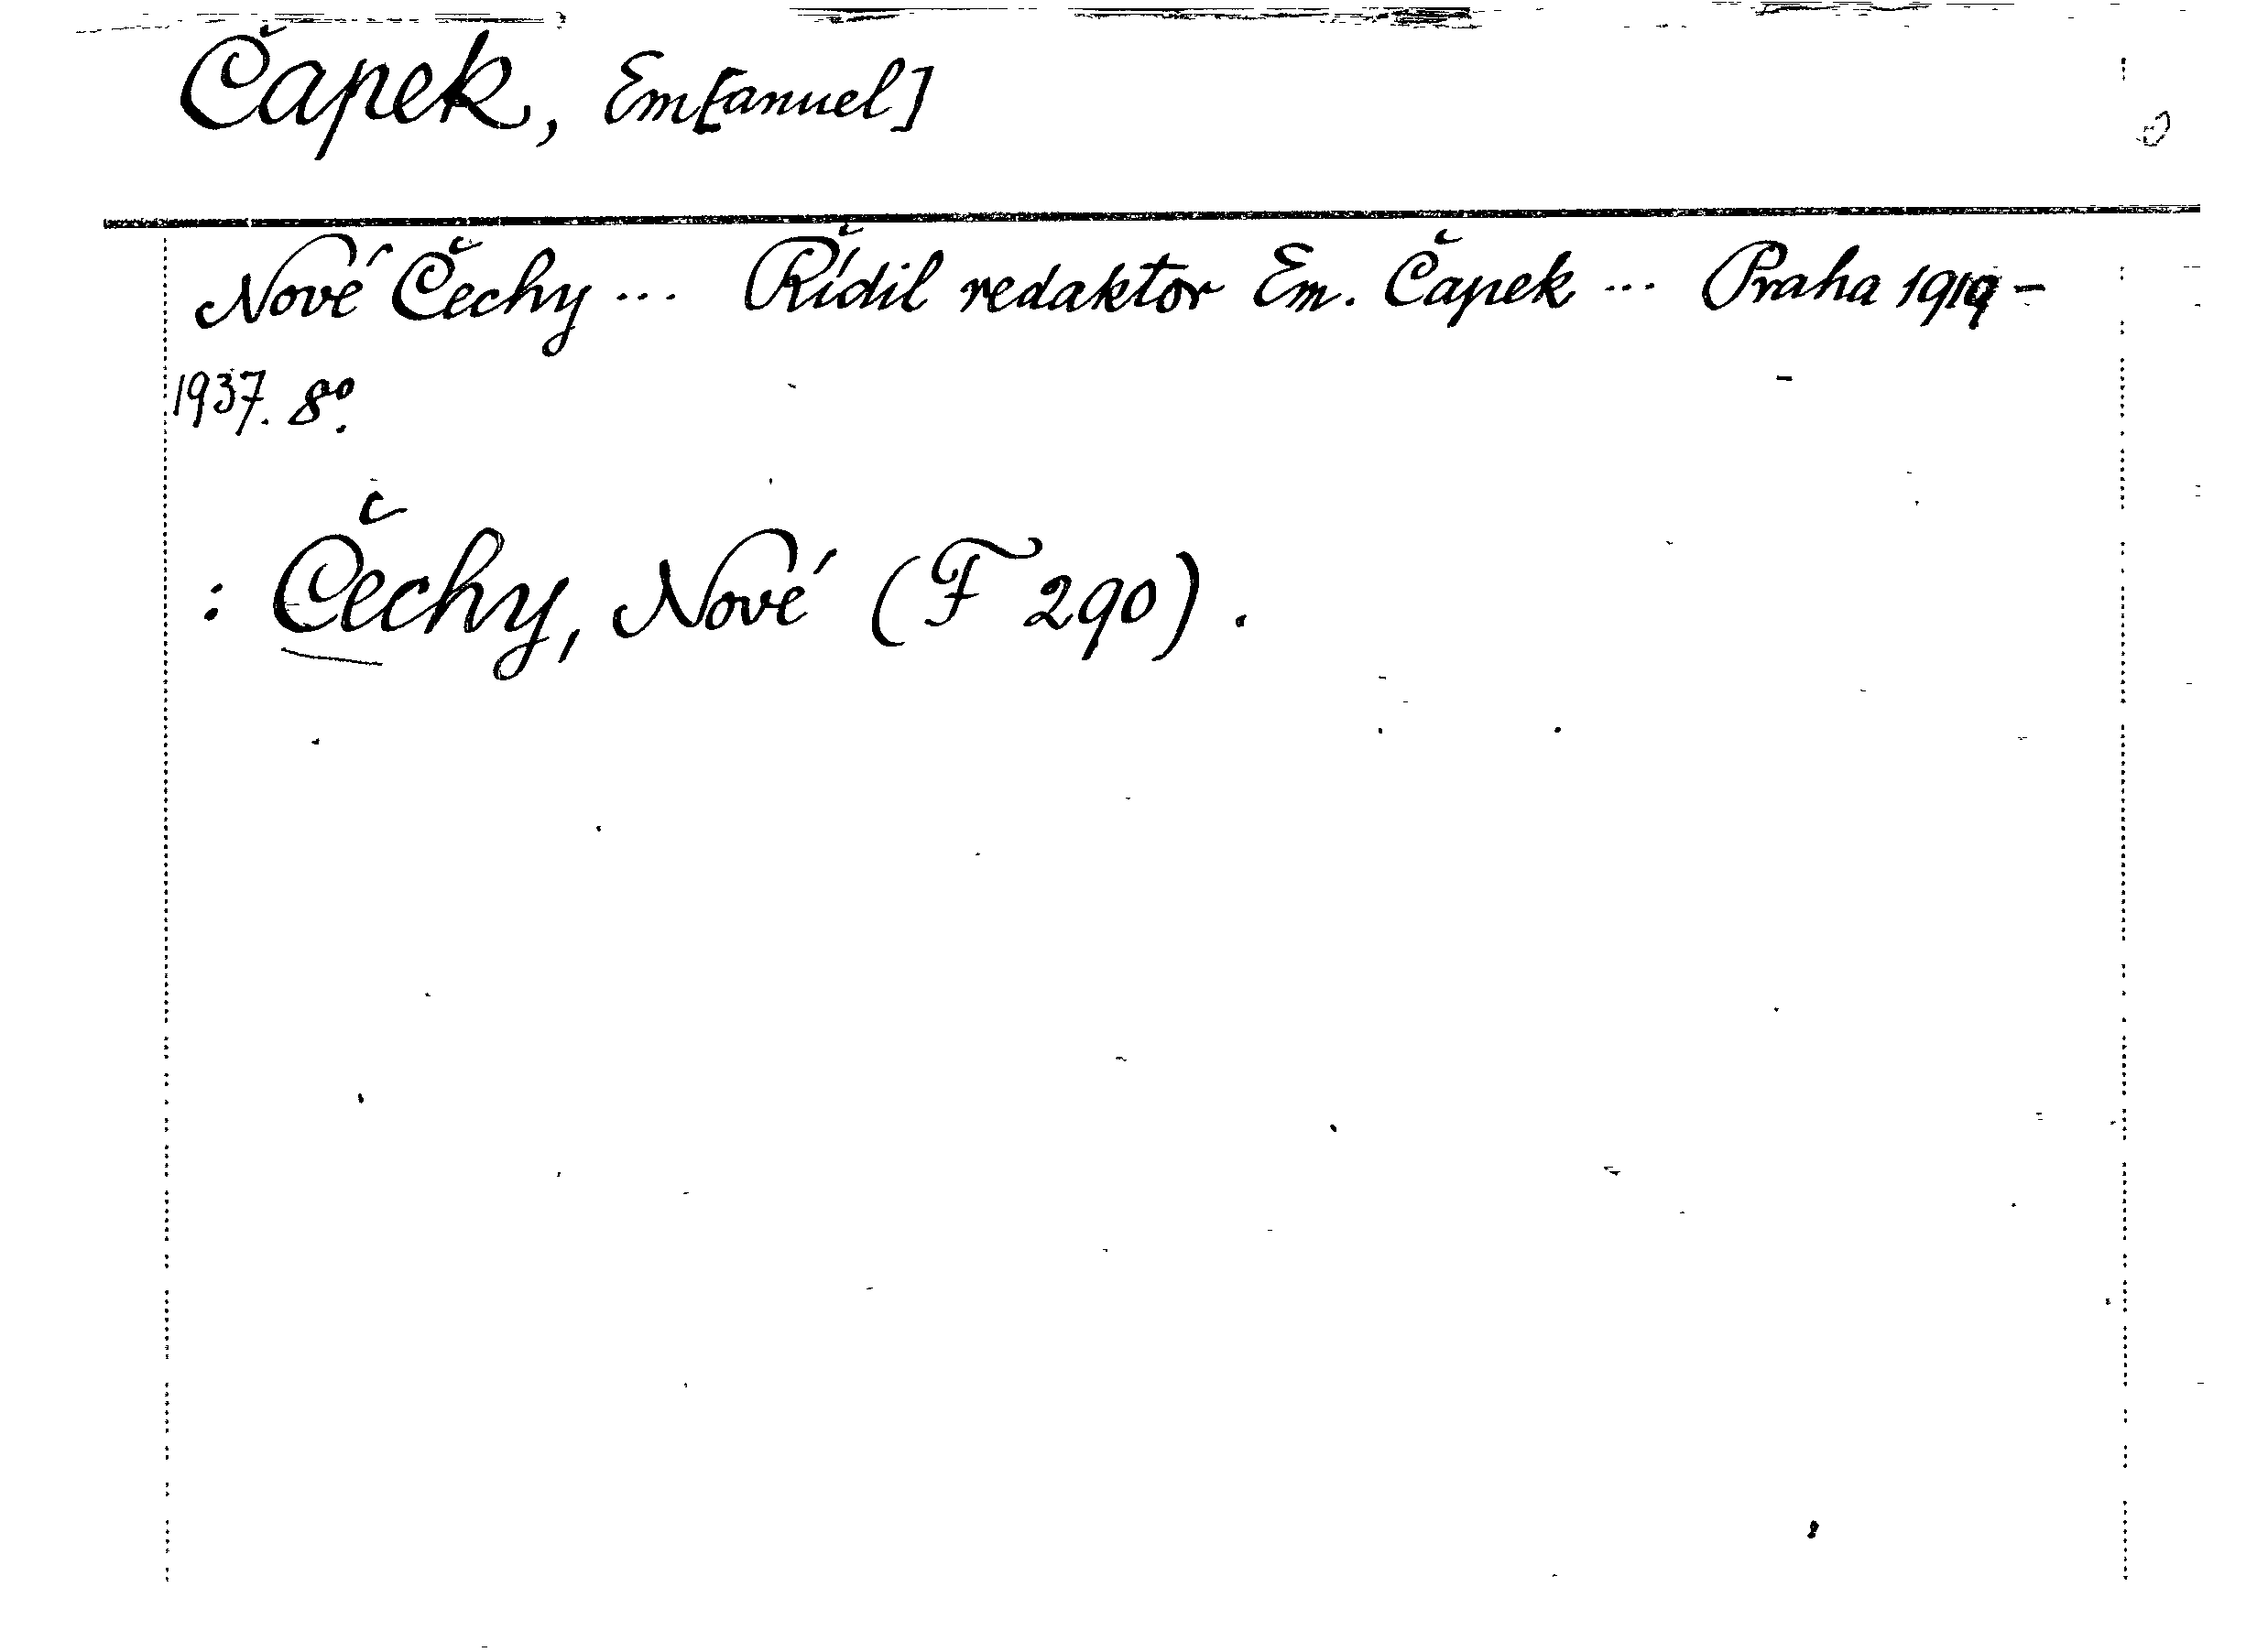 Čapek, Em[anuel]
Nové Čechy ... Řídil redaktor Em. Čapek ... Praha 1919-
1937. 8°.
: Čechy, Nové (F 290).